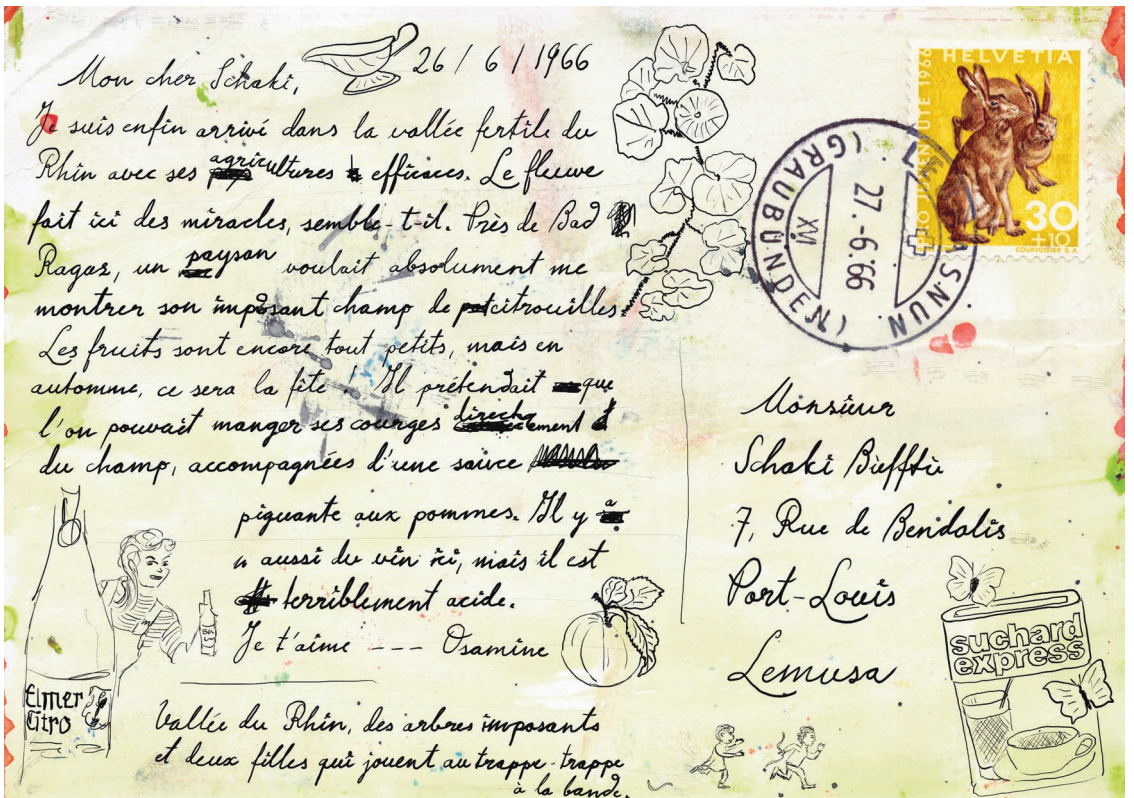 26 / 6 / 1966
Mon cher Schaki,
Je suis enfin arrivé dans la vallée fertile du
Rhin avec ses agricultures efficaces. Le fleuve
fait ici des miracles, semble-t-il. Près de Bad
Ragaz, un paysan voulait absolument me
montrer son imposant champ de citrouilles.
Les fruits sont encore tout petits, mais en
automne, ce sera la fête ! Il prétendait que
l'on pouvait manger ses courges directement
du champ, accompagnées d'une sauce
piquante aux pommes. Il y a
aussi du vin ici, mais il est
terriblement acide.
Je t'aime --- Osamine
Vallée du Rhin, des arbres imposants
et deux filles qui jouent au trappe-trappe
à la bande.
Elmer
Citro
HELVETIA
PRO JUVENTUTE 1966
30
+10
COURVOISIER S.A.
(GRAUBÜNDEN)
27.-6.66
XVI
Monsieur
Schaki Bieffti
7, Rue de Bendalis
Port-Louis
Lemusa
suchard
express